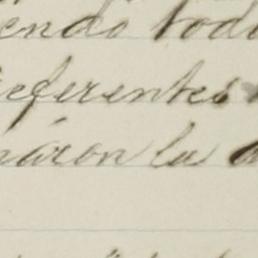 endo todo
eferentes
náron la